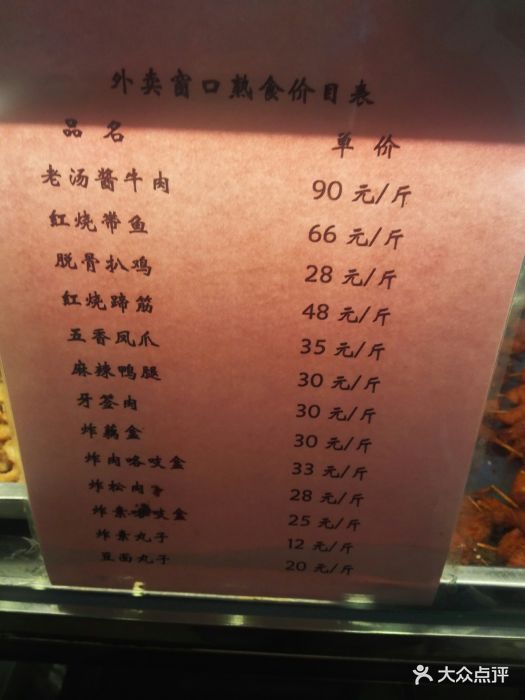 外卖窗口熟食价目表
品名 单价
老汤酱牛肉 90 元/斤
红烧带鱼 66 元/斤
脱骨扒鸡 28 元/斤
红烧蹄筋 48 元/斤
五香凤爪 35 元/斤
麻辣鸭腿 30 元/斤
牙签肉 30 元/斤
炸藕盒 30 元/斤
炸肉咯吱盒 33 元/斤
炸松肉 28 元/斤
炸素吱盒 25 元/斤
炸素丸子 12 元/斤
豆面丸子 20 元/斤
大众点评